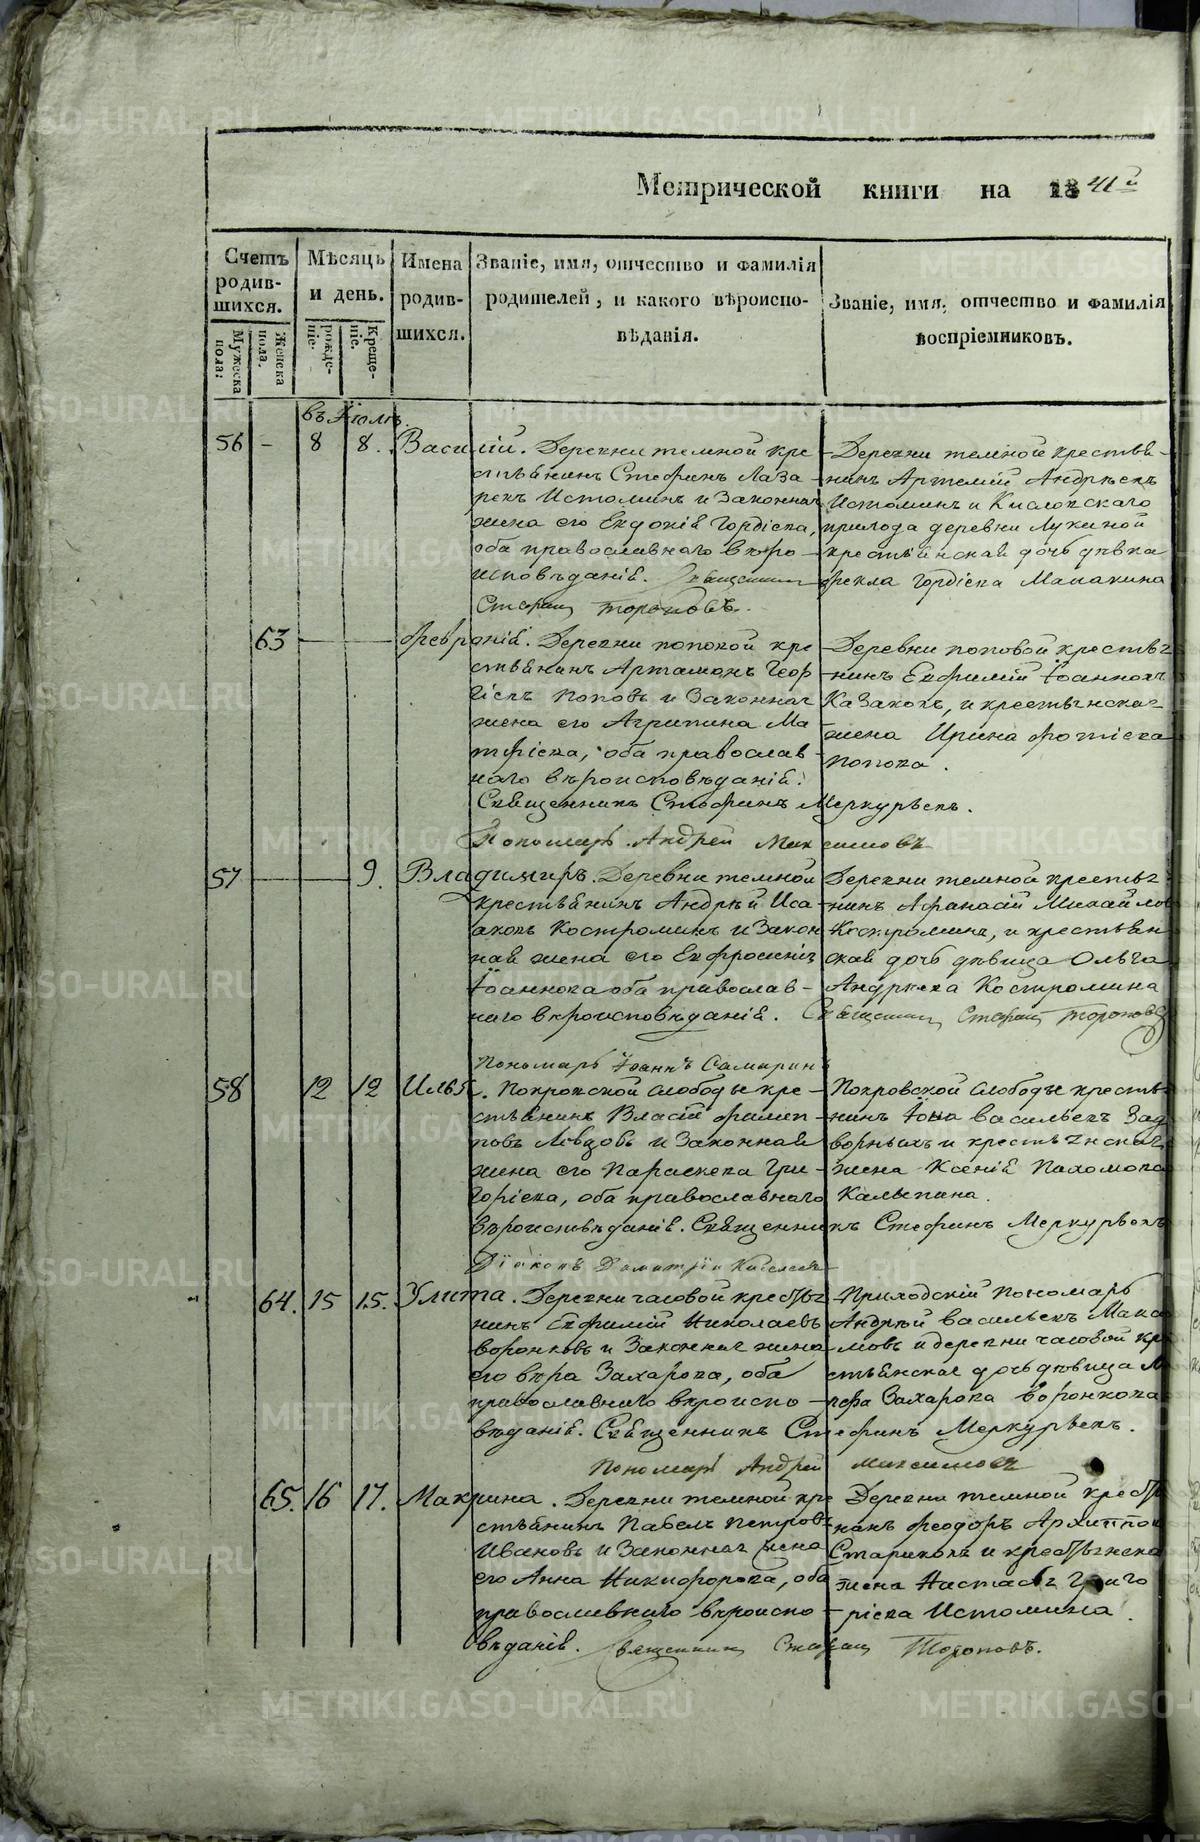 Метрической книги на 1841й
Счетъ родив-шихся.
Мужеска пола:
Женска пола.
Мѣсяцъ и день.
рожде-ніе.
Креще-ніе.
Имена родив-шихся.
Званіе, имя, отчество и фамилія
родителей, и какого вѣроиспо-
вѣданія.
Званіе, имя, отчество и фамилія
воспріемниковъ.
въ Іюлѣ.
56 - 8 8. Василій. Деревни темной кре-
стьянинъ Стефанъ Лаза-
ревъ Истоминъ и законная
жена его Евдокія Гордіева,
оба православнаго вѣро-
исповѣданія. Священникъ
Стефанъ Тороповъ.
Деревни темной крестья-
нинъ Артемій Андреевъ
Истоминъ и Кисловскаго
прихода деревни Лукиной
крестьянская дочь дѣвка
Фекла Гордіева Малахина
63 Февронія. Деревни поповой кре-
стьянинъ Артамонъ Геор-
гіевъ Поповъ и законная
жена его Агрипина Ма-
тфіева, оба православ-
наго вѣроисповѣданія.
Священникъ Стефанъ Меркурьевъ.
Пономарь Андрей Максимовъ
Деревни поповой крестья-
нинъ Евфимій Іоанновъ
Казаковъ, и крестьянская
жена Ирина Фотіева
Попова.
57 9. Владимиръ. Деревни темной
крестьянинъ Андрей Иса-
аковъ Костроминъ и закон-
ная жена его Евфросинія
Іоаннова оба православ-
наго вѣроисповѣданія. Священникъ Стефанъ Тороповъ
Пономарь Іоаннъ Самаринъ
Деревни темной крестья-
нинъ Афанасій Михайлов
Костроминъ, и крестьян-
ская дочь дѣвица Ольга
Андреева Костромина
58 12 12 Илья. Покровской слободы кре-
стьянинъ Власій Филип-
повъ Лѣвцовъ и законная
жена его Параскева Гри-
горіева, оба православнаго
вѣроисповѣданія. Священникъ Стефанъ Меркурьевъ
Діаконъ Димитрій Киселевъ
Покровской слободы крестья-
нинъ Іона Васильевъ Зад-
ворныхъ и крестьянская
жена Ксенія Пахомова
Калыгина.
64. 15 15. Улита. Деревни часовой крестья-
нинъ Евфимій Николаевъ
Воронковъ и законная жена
его Вѣра Захарова, оба
православнаго вѣроиспо-
вѣданія. Священникъ Стефанъ Меркурьевъ.
Пономарь Андрей Максимовъ
Приходскій Пономарь
Андрей Васильевъ Макси
мовъ и деревни часовой кре
стьянская дочь дѣвица
Захарова Воронкова
65. 16 17. Макрина. Деревни темной кре-
стьянинъ Павелъ Петровъ
Ивановъ и законная жена
его Анна Никифорова, оба
православнаго вѣроиспо-
вѣданія. Священникъ Стефанъ Тороповъ.
Деревни темной крестья
нинъ Феодоръ Архиппов
Стариковъ и крестьянска
жена Настасья Григо
ріева Истомина.
METRIKI.GASO-URAL.RU